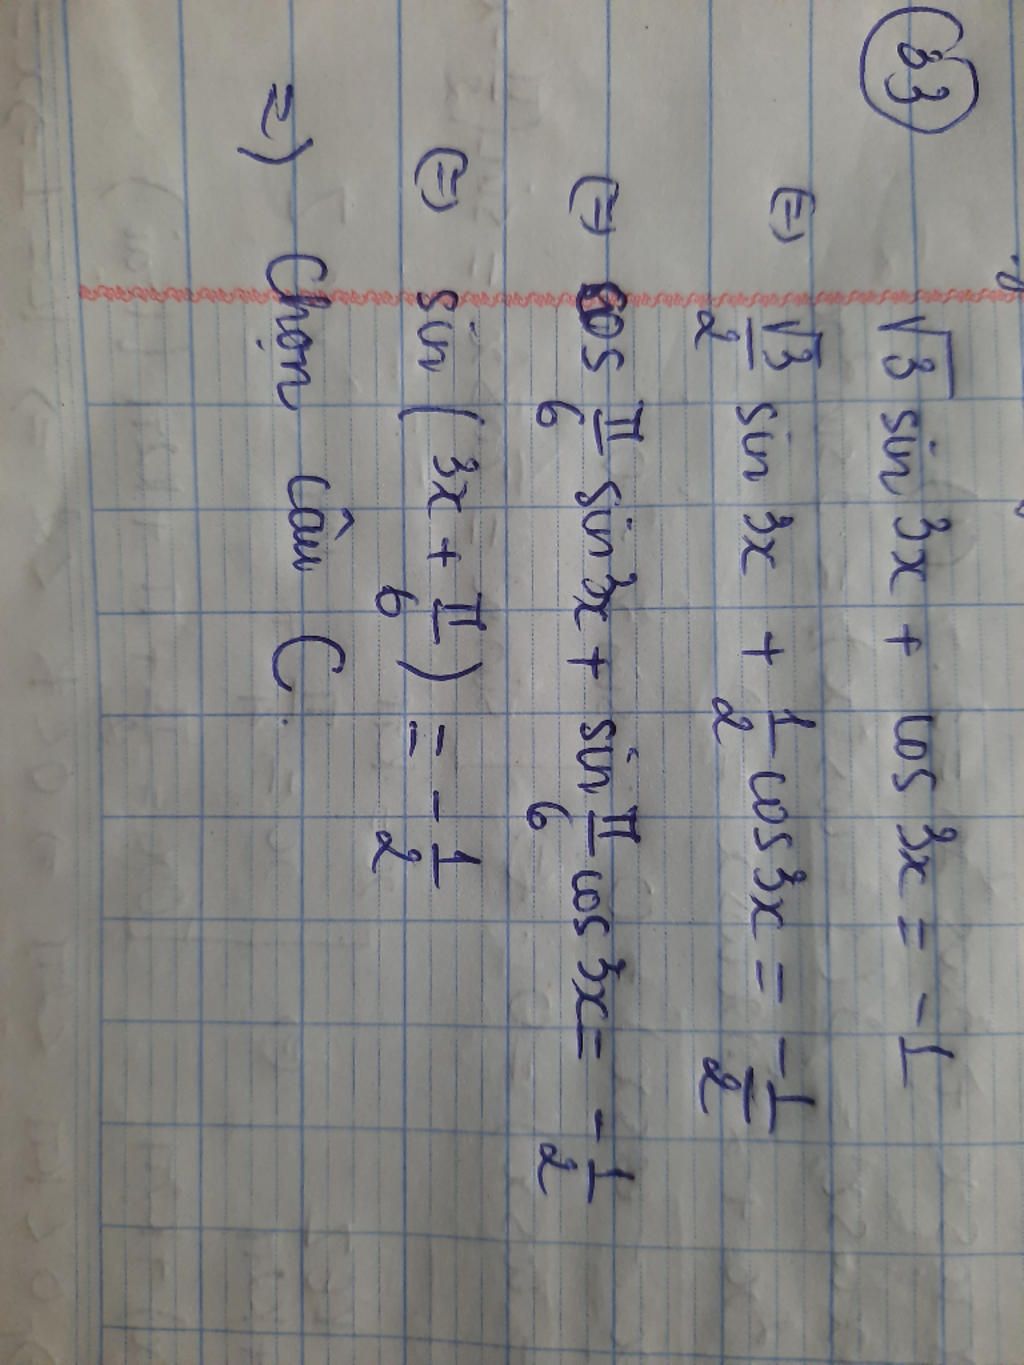 33
√3 sin 3x + cos 3x = -1
(=) √3/2 sin 3x + 1/2 cos 3x = -1/2
(=) cos π/6 sin 3x + sin π/6 cos 3x = -1/2
(=) sin (3x + π/6) = -1/2
=) Chọn câu C.